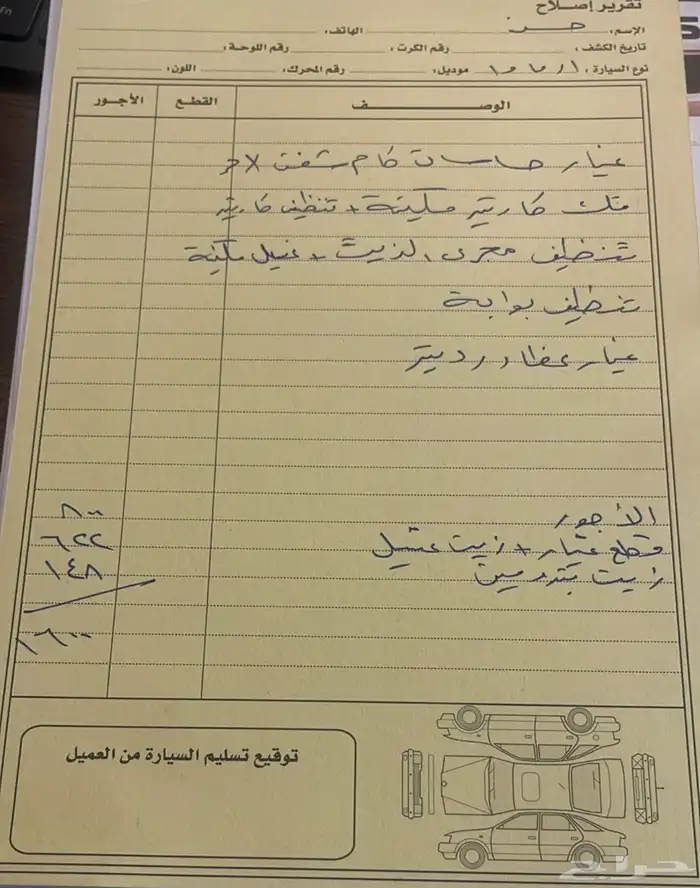 تقرير إصلاح
الإسم، حسن الهاتف،
تاريخ الكشف، رقم الكرت، رقم اللوحة،
نوع السيارة، موديل، رقم المحرك، اللون،
الوصف القطع الأجور
غيار حساسات كام شفت
فك كارتير مكينة + تنظيف كارتير
تنظيف مجرى الزيت + غسيل مكينة
تنظيف بوابة
غيار غطاء رديتر
الأجور ٨٠٠
قطع غيار + زيت غسيل ٦٢٢
زيت بترومين ١٤٨
١٦٠٠
توقيع تسليم السيارة من العميل
حراج